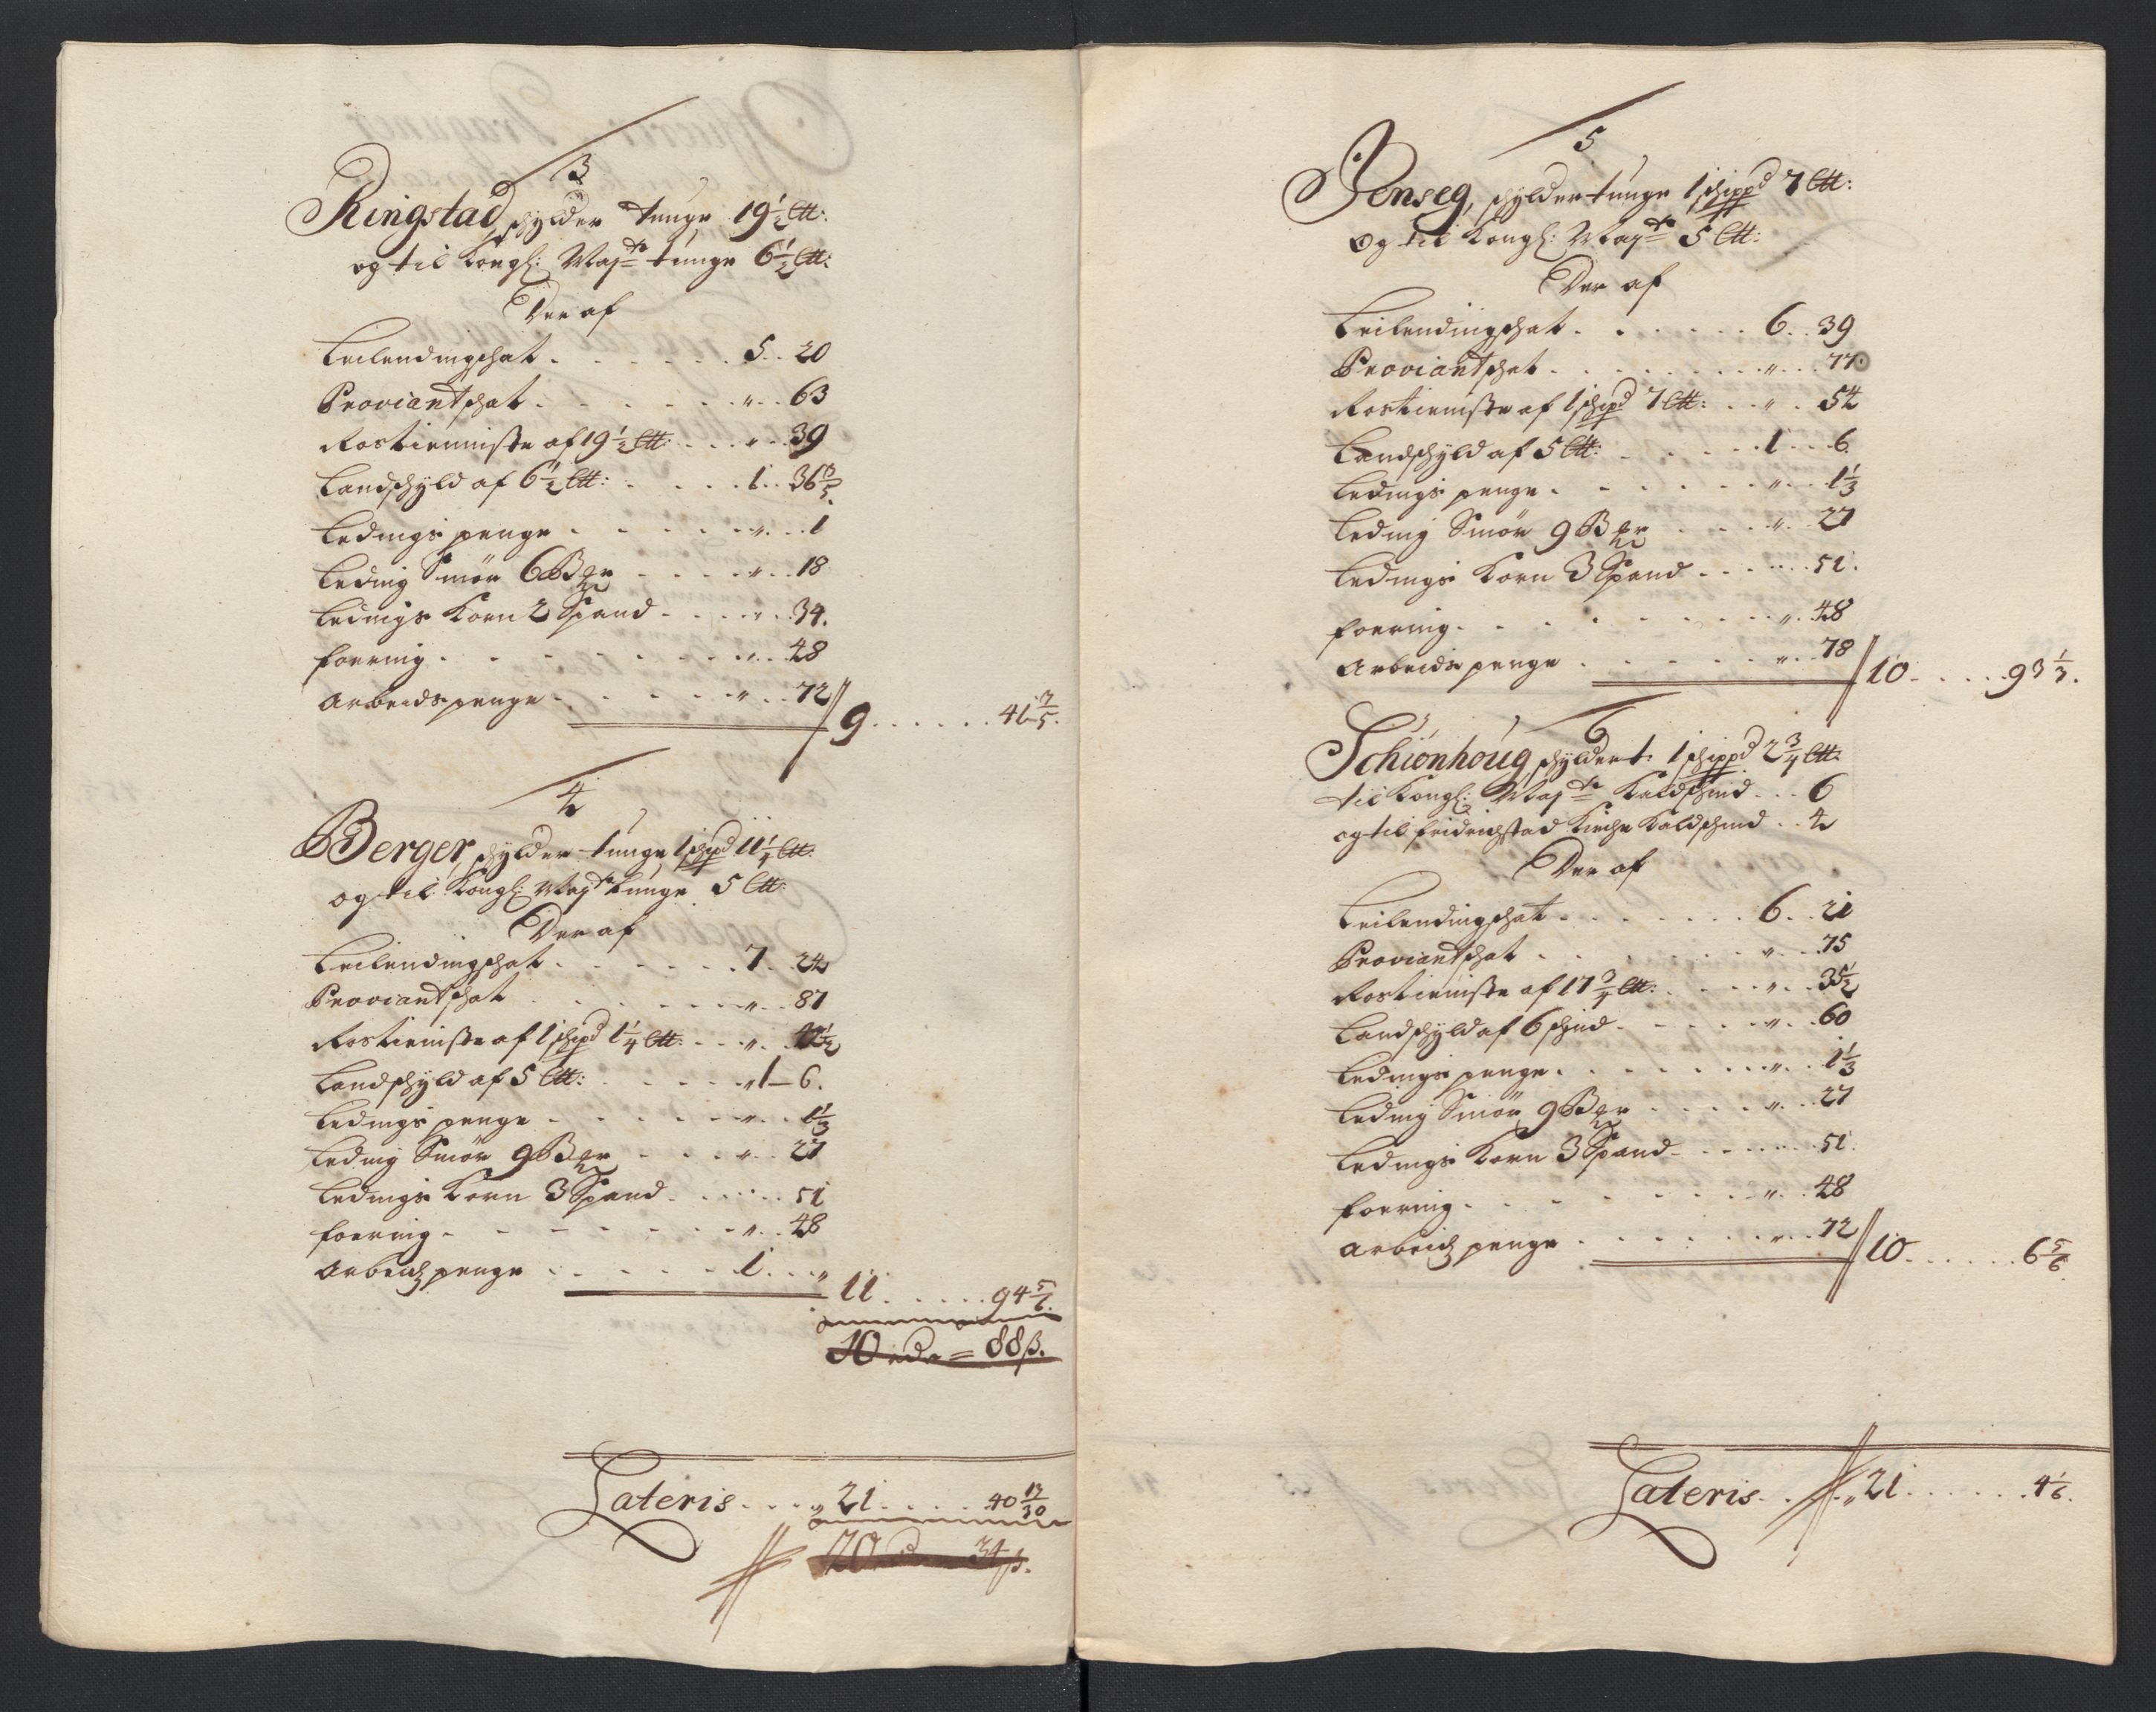 3
Ringstad, schylder tunge 19½ Ltt:
og til Kongl: Maj<sup>te</sup> tunge 6½ Ltt:
Der af
Leilendingschat . . . . . . 5 . . 20
Proviantschat . . . . . . " . . 63
Rostienniste af 19½ Ltt: . . . " . . 39
Landschyld af 6½ Ltt: . . . . 1 . . 36
Ledings penge . . . . . . " . . 1
Leding Smör 6 B . . . . " . . 18
Ledings Korn 2 Spand . . . . " . . 34.
foering . . . . . . . . " . . 48
Arbeids penge . . . . . . " . . 72
9 . . . . . . 41 3/5.
4
Berger, schylder tunge 1 schpd 11¼ Ltt:
og til Kongl: Maj<sup>te</sup> tunge 5 Ltt:
Der af
Leilendingschat . . . . . . 7 . . 24
Proviantschat . . . . . . " . . 87
Rostieniste af 1 schpd 1¼ Ltt: . . . " . . 42½
Landschyld af 5 Ltt: . . . . . " 1 – 6.
Ledings penge . . . . . . " . . 1⅓
Leding Smör 9 B . . . " . . 27
Ledings Korn 3 Spand . . . . . . 51
foering . . . . . . . . " . . 48
Arbeids penge . . . . . . 1 . . . "
11 . . . . . . 94 5/6.
10 rdr = 88 ß.
Lateris . . . " 21 . . . . 40 13/30
20 rd 34 ß.
5
Jenseg, schylder tunge 1 schippd 7 Ltt:
og til Kongl: Maj<sup>te</sup> 5 Ltt:
Der af
Leilendingschat . . . . . . 6 . . 39
Proviantschat . . . . . . . . " . . . 77
Rostieniste af 1 schpd 7 Ltt: . . " . 54
Landschyld af 5 Ltt: . . . . . 1 . . 6.
Ledings penge . . . . . . . " . . 1⅓
Leding Smör 9 B . . . . " . . 27
Ledings Korn 3 Spand . . . . . . 51.
foering . . . . . . . . . " . . 48
Arbeids penge . . . . . . " . . 78
10 . . . . . 93⅓.
6
Schiönhoug, schylder t: 1 schippd 2¾ Ltt:
til Kongl: Maj<sup>te</sup> Kaldschind . . . 6
og til fridrichstad Kirche Kaldschind . . 4
Der af
Leilendingschat . . . . . . . 6 . . 21
Proviantschat . . . . . . . " . . . 75
Rostieniste af 17¾ Ltt: . . . . " . . 35½
Landschyld af 6 schind . . . . . " . . 60
Ledings penge . . . . . . . " . . 1⅓
Leding Smör 9 B . . . . " . . 27
Ledings Korn 3 Spand . . . . . . 51.
foering . . . . . . . . " . . 48
Arbeids penge . . . . . . . " . . 72
10 . . . . . . 6 5/6
Lateris . . . " 21 . . . . . . 4 1/6.